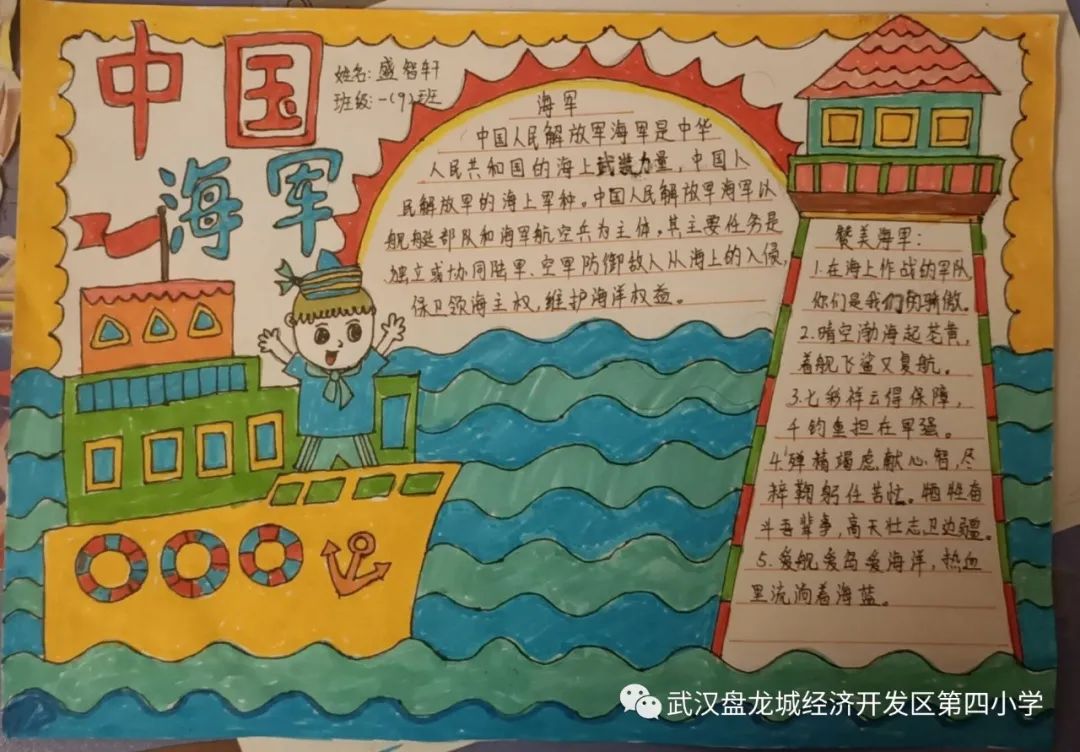 中国
海军
姓名:盛智轩
班级:一(9)班
海军
中国人民解放军海军是中华
人民共和国的海上武装力量,中国人
民解放军的海上军种。中国人民解放军海军以
舰艇部队和海军航空兵为主体。其主要任务是
独立或协同陆军、空军防御敌人从海上的入侵,
保卫领海主权,维护海洋权益。
赞美海军:
1.在海上作战的军队,
你们是我们的骄傲。
2.晴空渤海起苍黄,
着舰飞鲨又复航。
3.七彩祥云得保障,
千钧重担在军强。
4.殚精竭虑献心智,尽
粹鞠躬任苦忙。牺牲奋
斗吾辈事,高天壮志卫边疆。
5.爱舰爱岛爱海洋,热血
里流淌着海蓝。
武汉盘龙城经济开发区第四小学